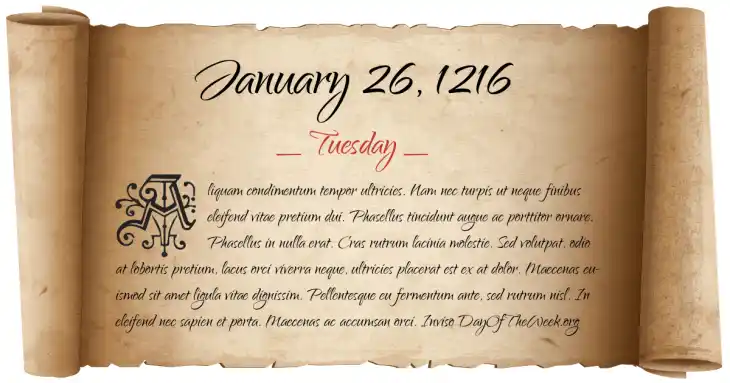 January 26, 1216
_ Tuesday _
Aliquam condimentum tempor ultricies. Nam nec turpis ut neque finibus
eleifend vitae pretium dui. Phasellus tincidunt augue ac porttitor ornare.
Phasellus in nulla erat. Cras rutrum lacinia molestie. Sed volutpat, odio
at lobortis pretium, lacus orci viverra neque, ultricies placerat est ex at dolor. Maecenas eu-
ismod sit amet ligula vitae dignissim. Pellentesque eu fermentum ante, sed rutrum nisl. In
eleifend nec sapien et porta. Maecenas ac accumsan orci. Inviso DayOfTheWeek.org